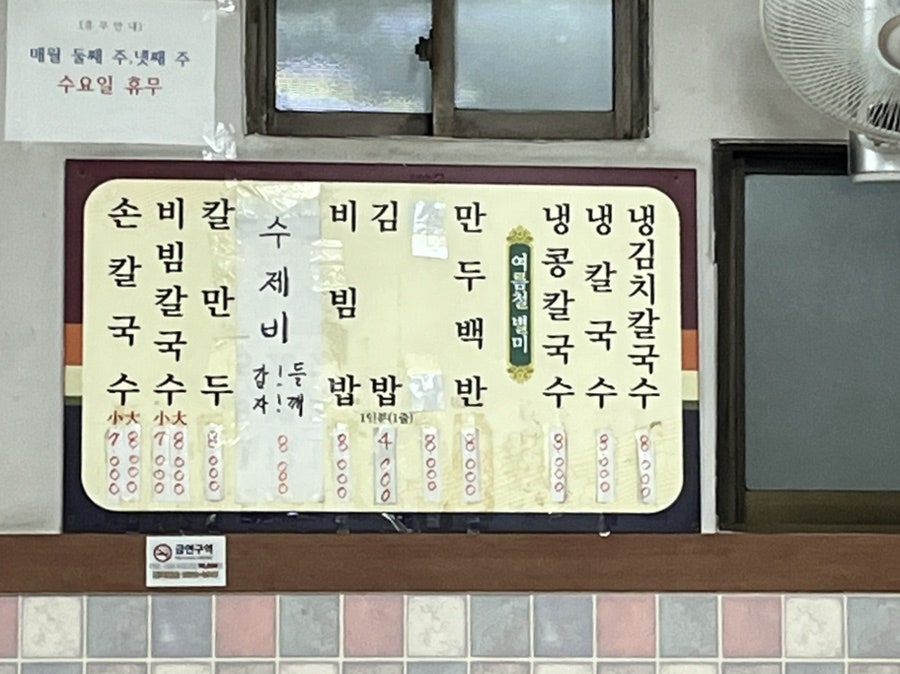 [휴무안내]
매월 둘째 주,넷째 주
수요일 휴무
손칼국수
小大
7000
8000
비빔칼국수
小大
7000
8000
칼만두
8000
수제비
감자
들깨
8 80
비빔밥
8000
김밥
1인분(1줄)
4000
8000
만두백반
8000
여름철 별미
냉콩칼국수
8000
냉칼국수
8000
냉김치칼국수
8000
금연구역